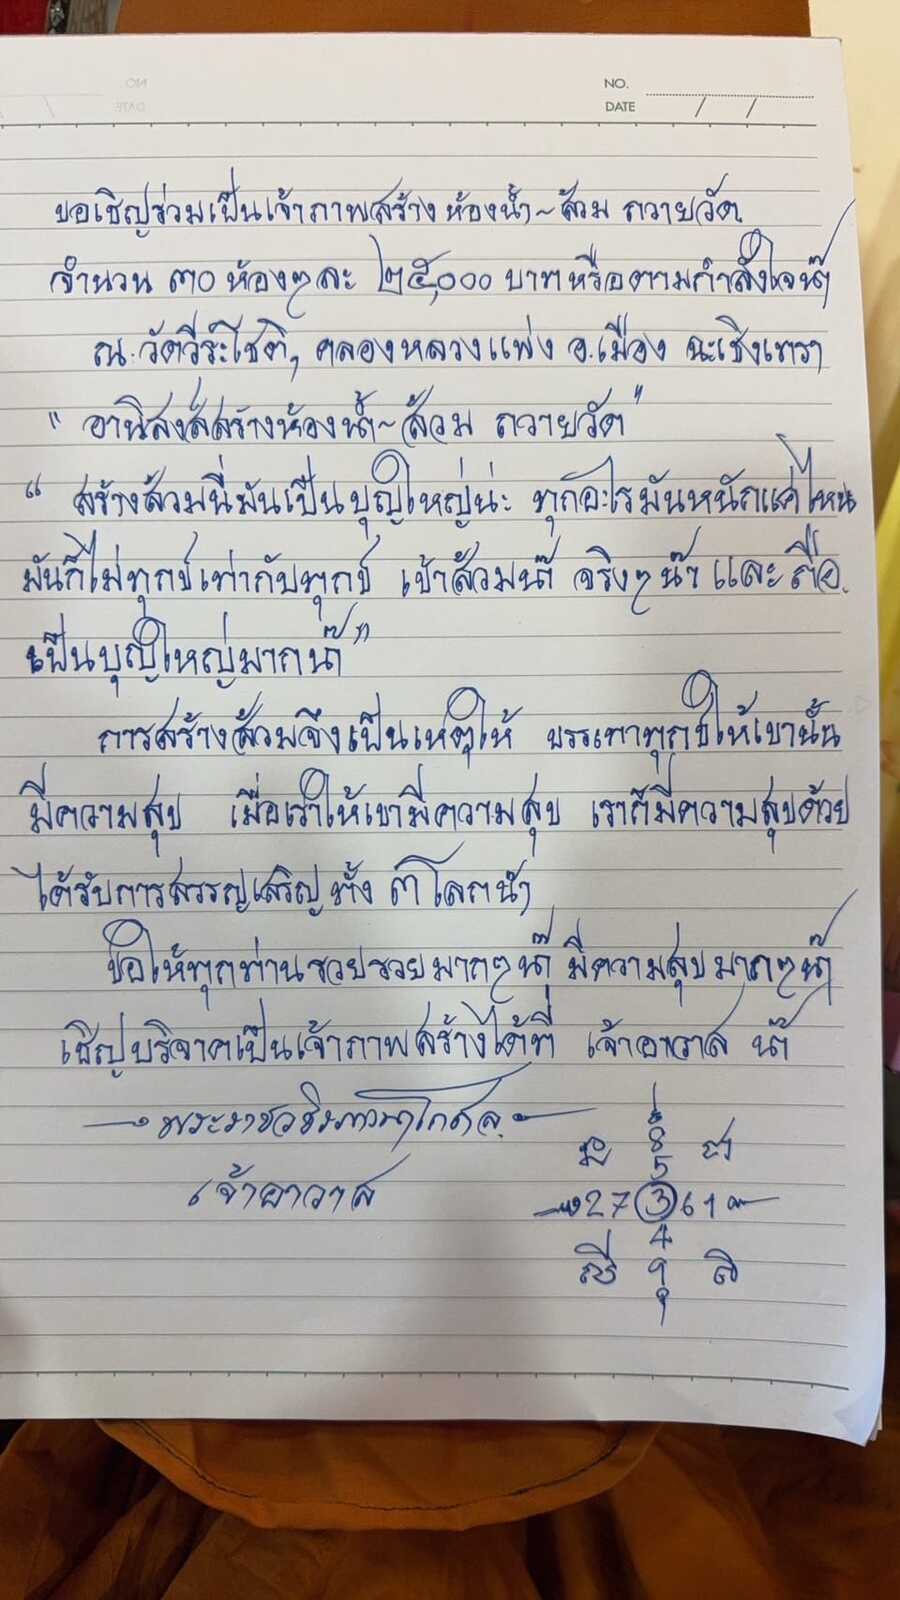 NO.
DATE / /
ขอเชิญร่วมเป็นเจ้าภาพสร้าง ห้องน้ำ~ส้วม ถวายวัด
จำนวน ๓๐ ห้องๆละ ๒๕,๐๐๐ บาทหรือตามกำลังใจน๊ะ
ณ. วัดวีระโชติฯ คลองหลวงแพ่ง อ.เมือง ฉะเชิงเทรา
" อานิสงส์สร้างห้องน้ำ~ส้วม ถวายวัด"
" สร้างส้วมนี่มันเป็นบุญใหญ่น่ะ ทุกอะไรมันหนักแค่ไหน
มันก็ไม่ทุกข์เท่ากับทุกข์ เข้าส้วมน๊ะ จริงๆน๊ะ และถือ
เป็นบุญใหญ่มากน๊ะ"
การสร้างส้วมจึงเป็นเหตุให้ บรรเทาทุกข์ให้เขานั้น
มีความสุข เมื่อเราให้เขามีความสุข เราก็มีความสุขด้วย
ได้รับการสรรญเสริญทั้ง ๓ โลกน๊ะ
ขอให้ทุกท่านรวยรวยมากๆน๊ะ มีความสุขมากๆน๊ะ
เชิญบริจาคเป็นเจ้าภาพสร้างได้ที่ เจ้าอาวาส น๊ะ
เจ้าอาวาส
8
5
27 3 61
4
9